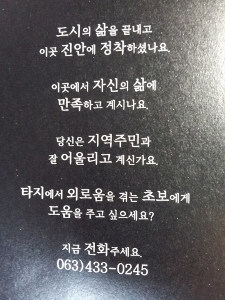 도시의 삶을 끝내고
이곳 진안에 정착하셨나요.
이곳에서 자신의 삶에
만족하고 계시나요.
당신은 지역주민과
잘 어울리고 계신가요.
타지에서 외로움을 겪는 초보에게
도움을 주고 싶으세요?
지금 전화주세요.
063)433-0245